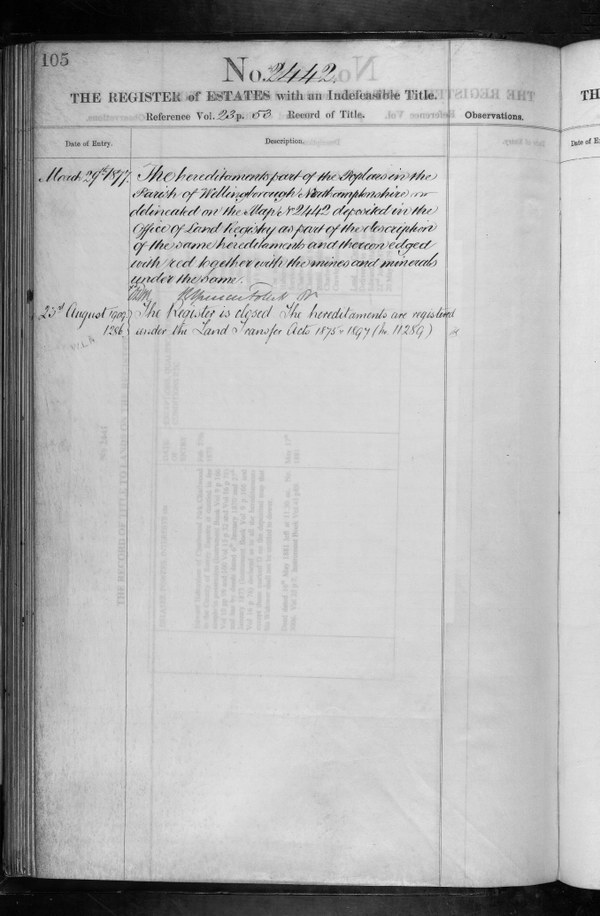 105
No. 2442.
THE REGISTER of ESTATES with an Indefeasible Title.
Reference Vol. 23 p. 53 Record of Title.
Observations.
Date of Entry.
Description.
March 29th 1877
The hereditaments part of the Poplars in the
Parish of Wellingborough Northamptonshire
delineated on the Map No 2442 deposited in the
Office of Land Registry as part of the description
of the same hereditaments and thereon edged
with red together with the mines and minerals
under the same.
23rd August 1909
The Register is closed The hereditaments are registered
1286
under the Land Transfer Acts 1875 & 1897 (No 11289)
TH
Date of E